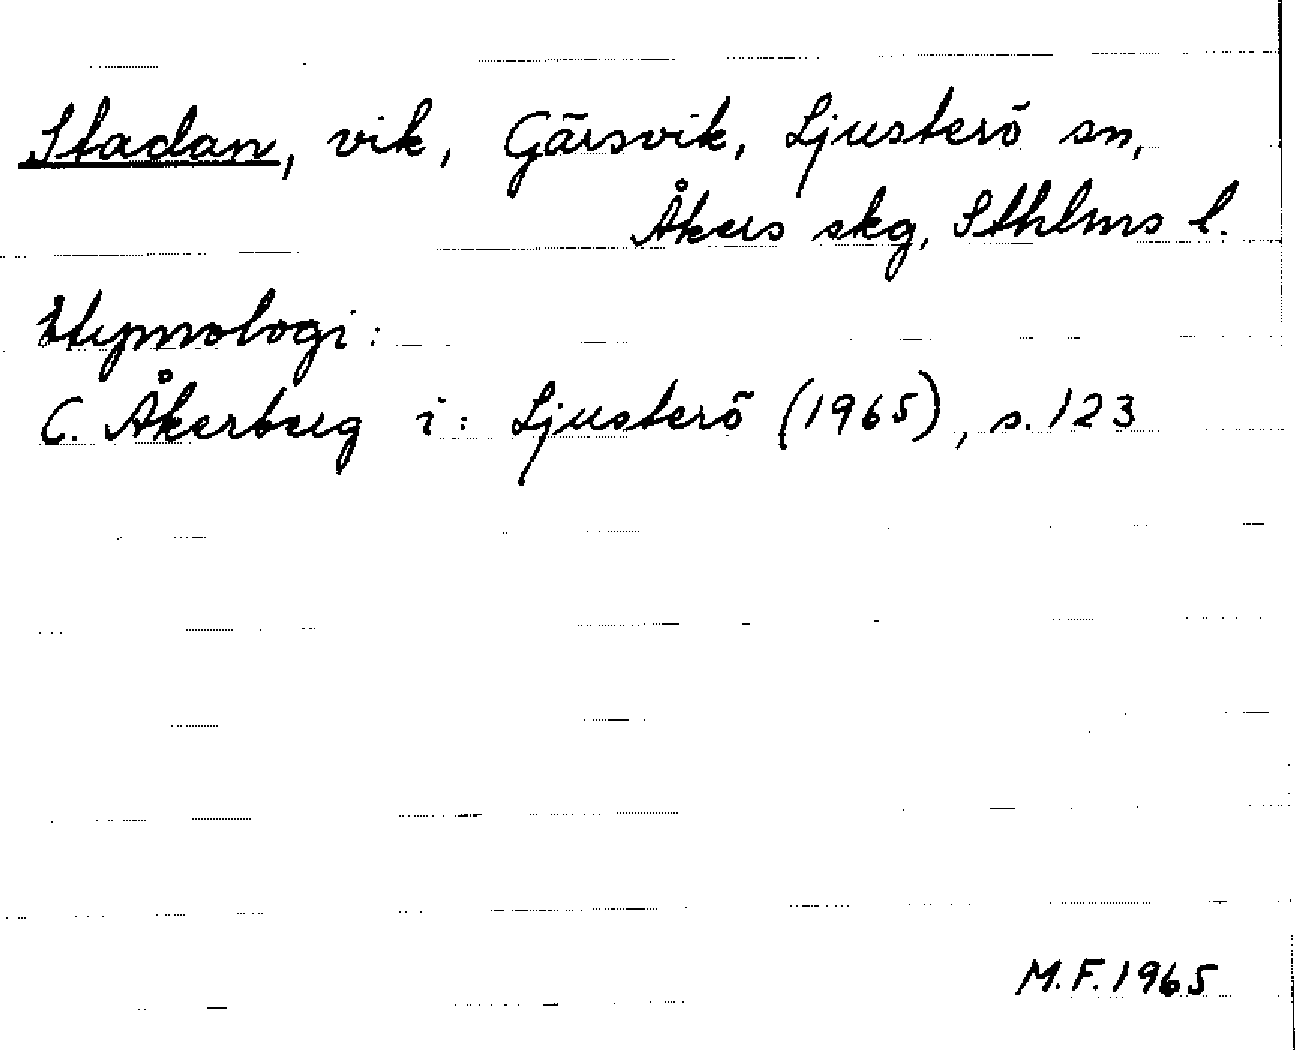 Stadan, vik, Gärsvik, Ljusterö sn,
Åkers skg, Sthlms l.
Etymologi:
C. Åkerberg i: Ljusterö (1965), s. 123
M.F. 1965